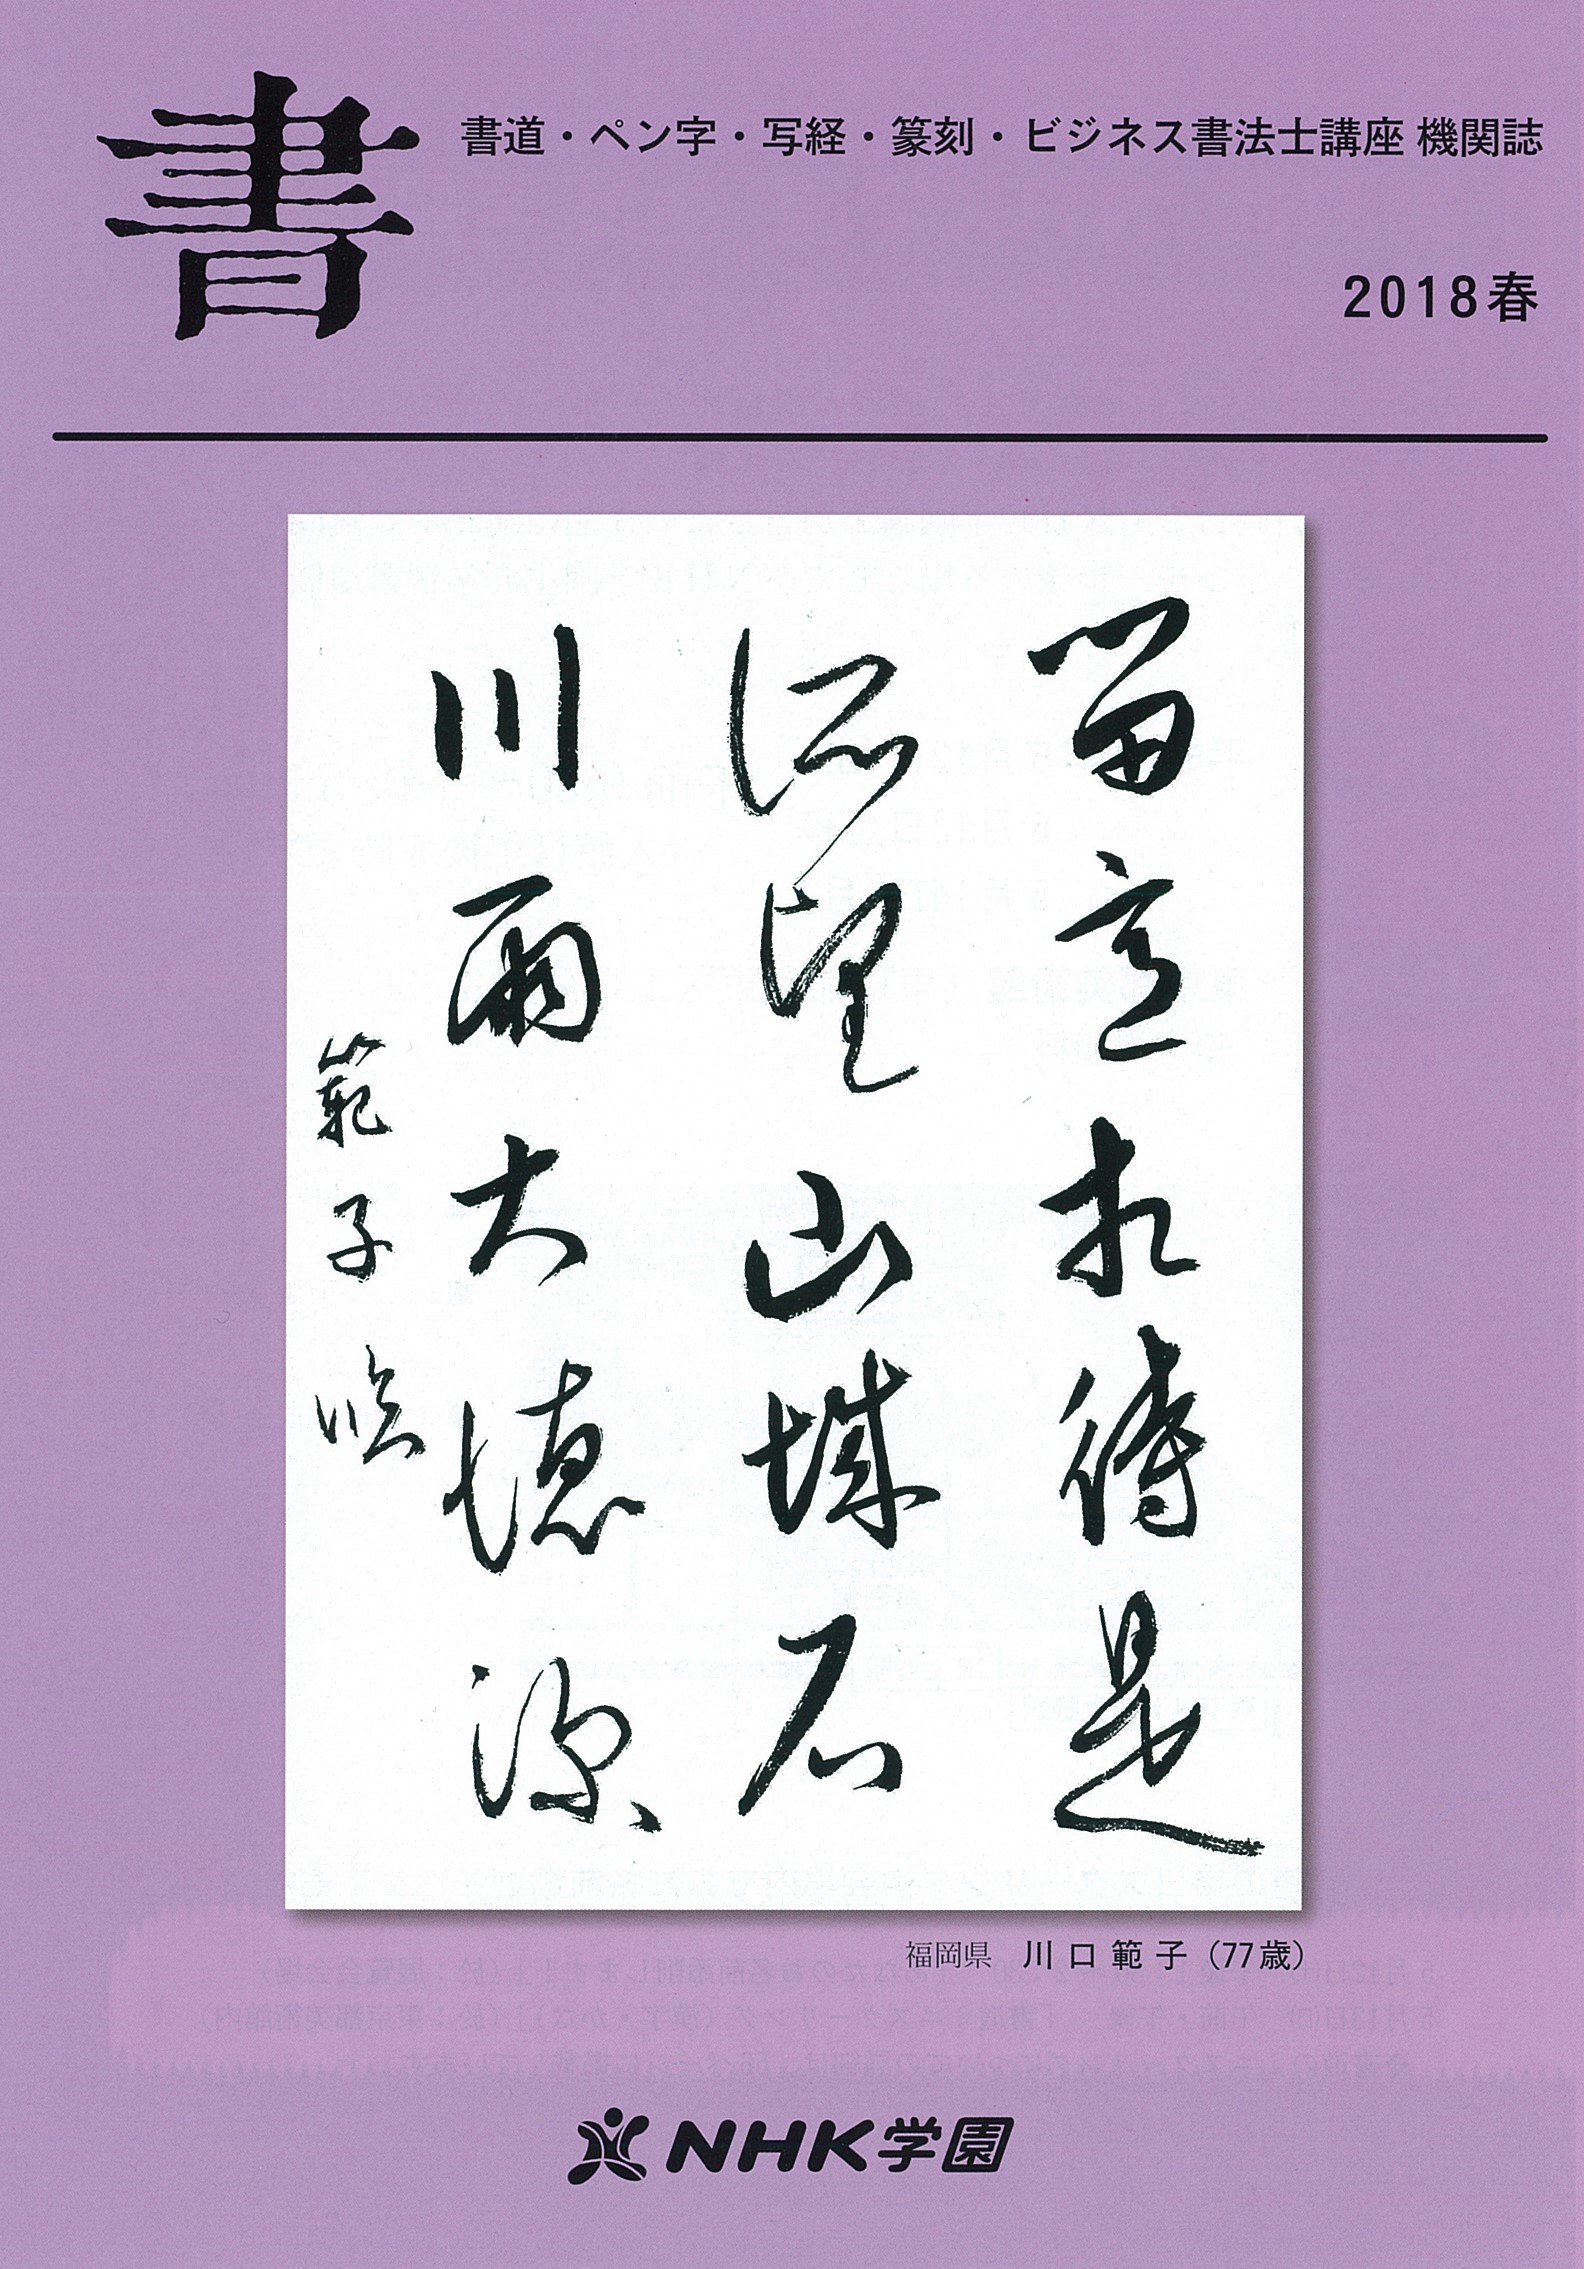 書
書道・ペン字・写経・篆刻・ビジネス書法士講座 機関誌
2018春
留意相待是
所望山城石
川両大徳深
範子臨
福岡県 川口範子（77歳）
NHK学園